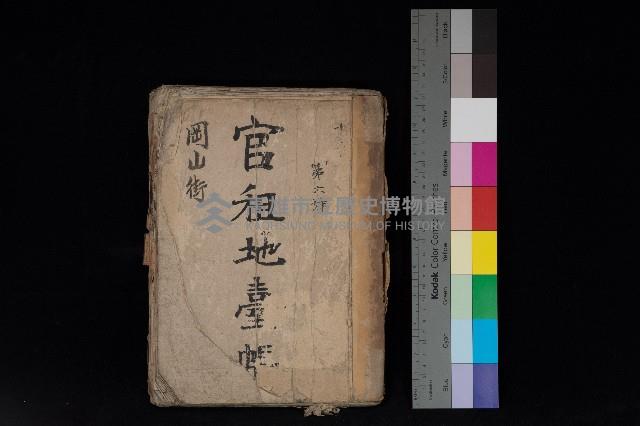 第六
官租地臺帳
岡山街
高雄市立歷史博物館
KAOHSIUNG MUSEUM OF HISTORY
Kodak Color Control Patches
Black
3/Color
White
Magenta
Red
Yellow
Green
Cyan
Blue